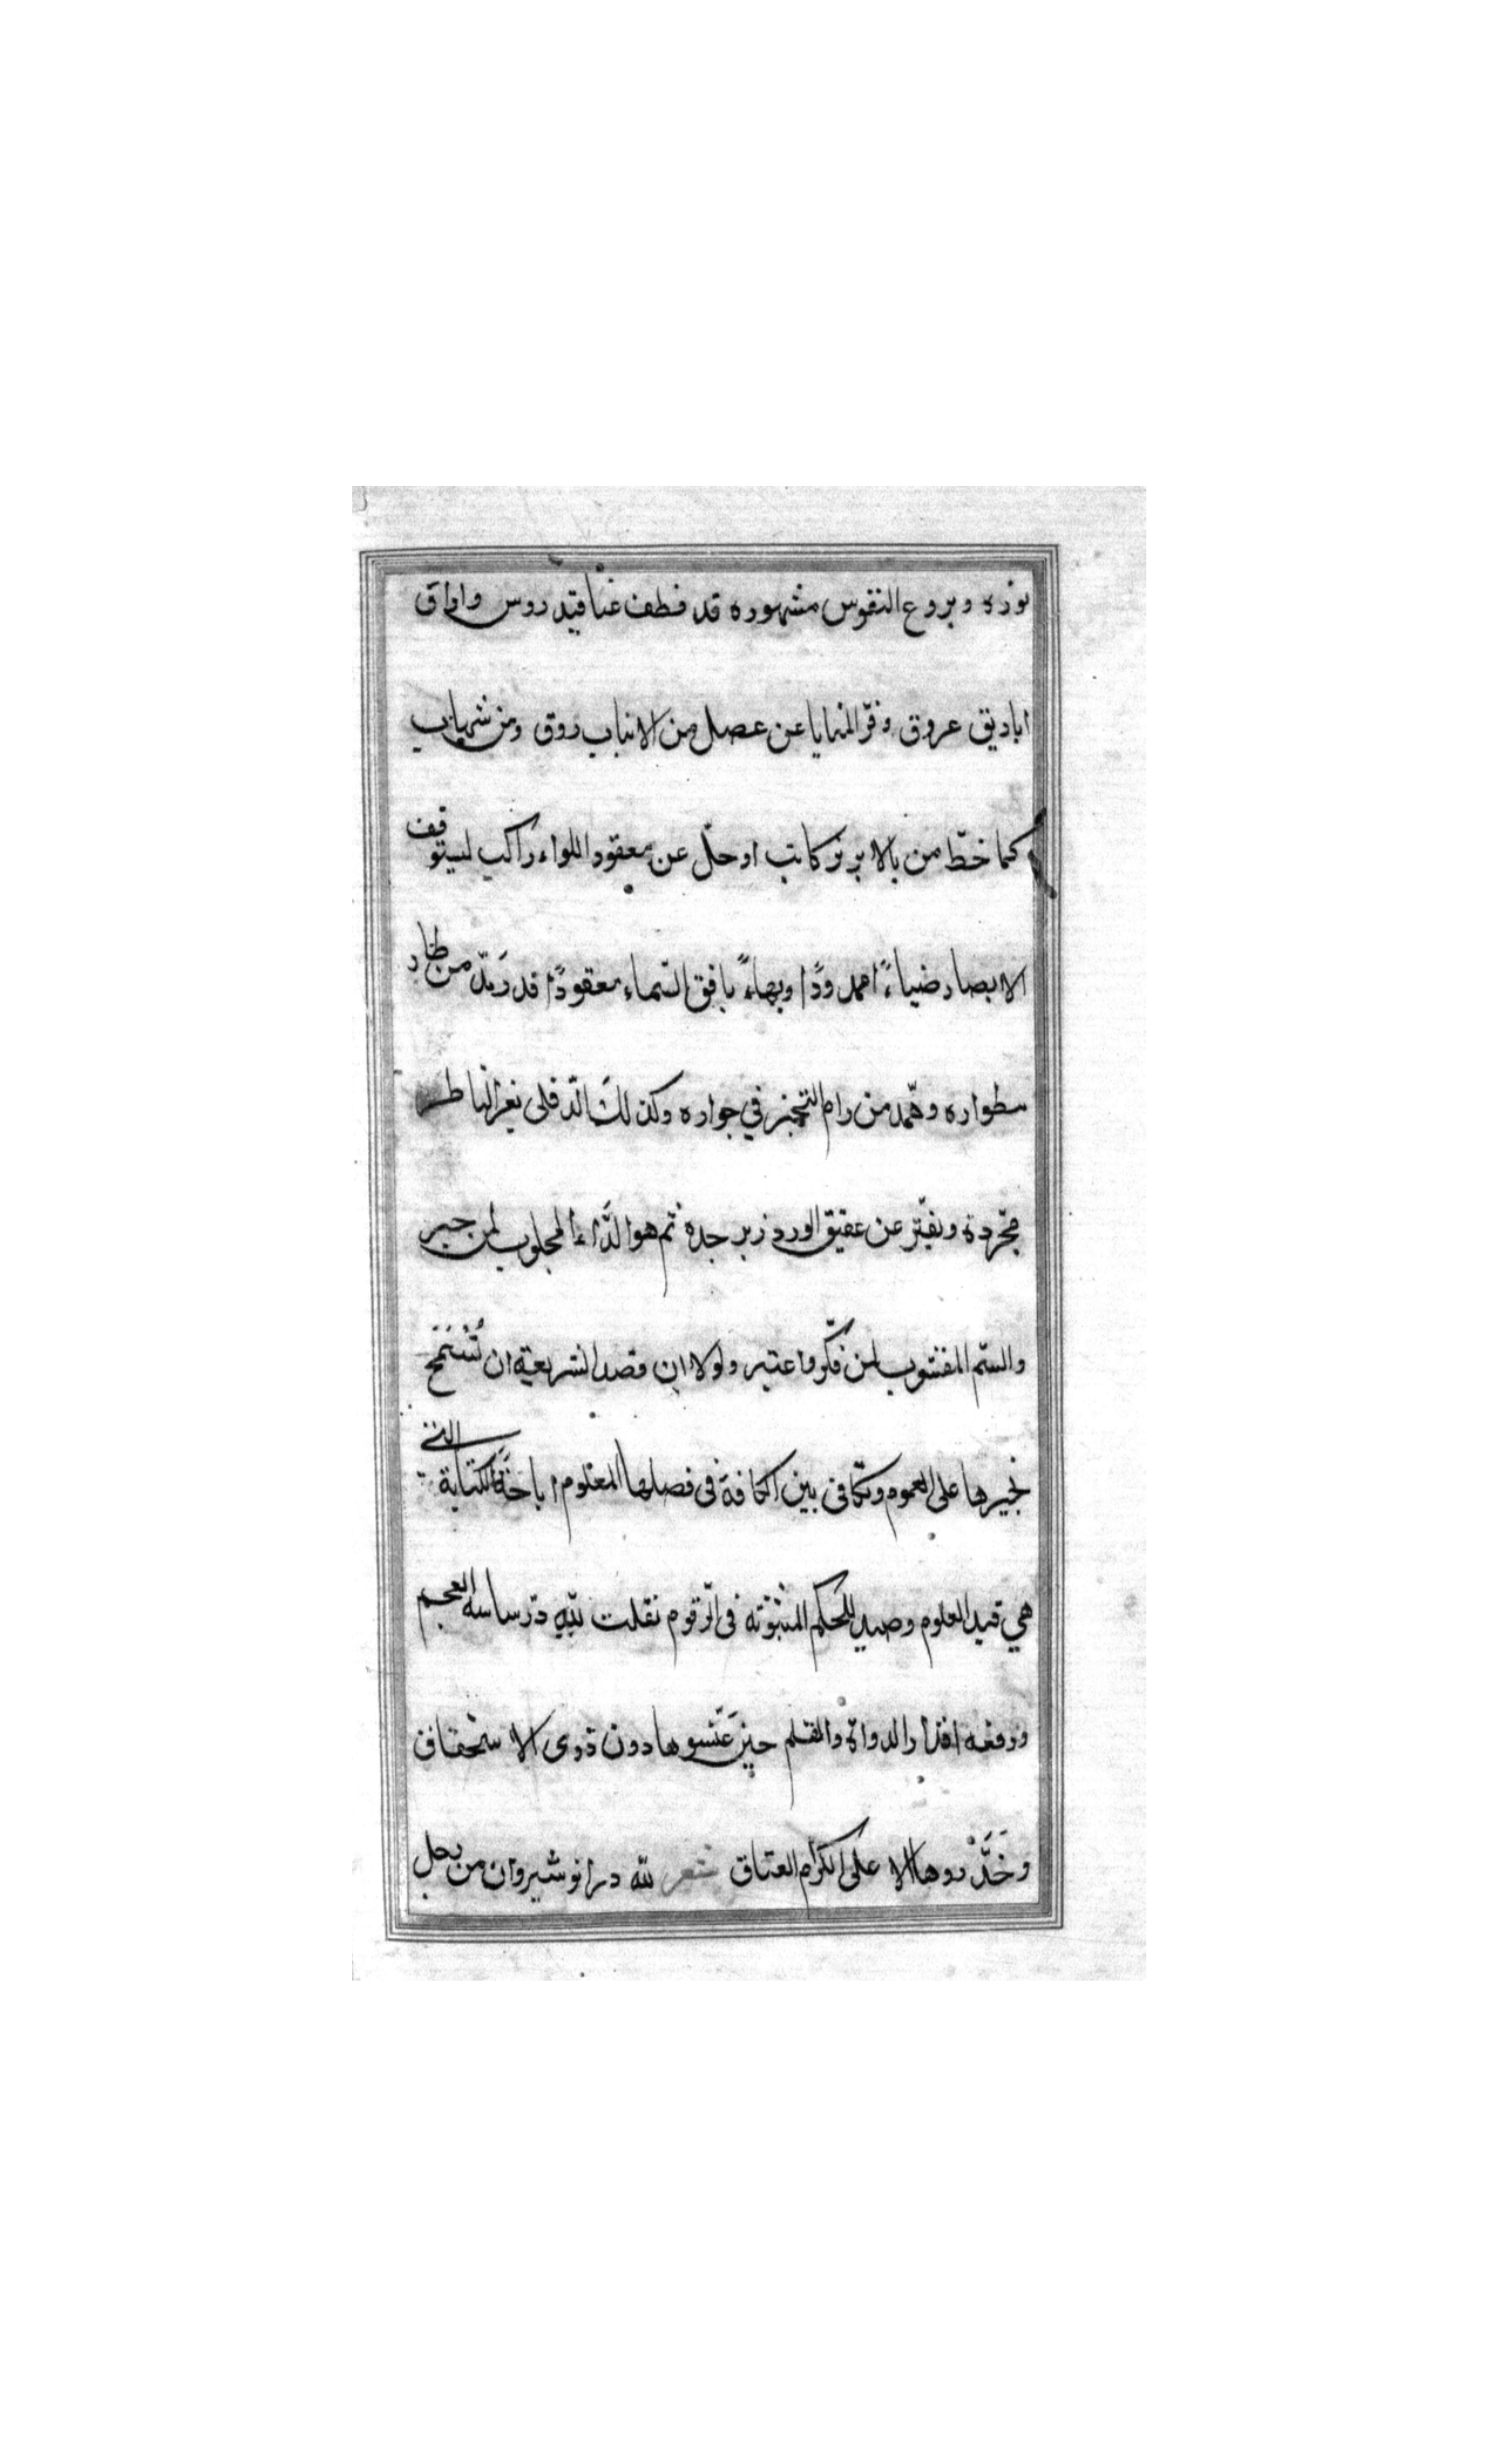 نوره وبروع النفوس مشهوره قد قطف عناقيد روس واراق
اباريق عروق وفرّ المنايا عن عصل من الانياب روق ومن شهاب
كما خطّ من بالابريز كاتب اوحلّ عن معقود اللواء راكب ليستوقف
الابصار ضياءً ممدودًا وبهاءً بافق السّماء معقودًا قد رمّد من طار
بطواره وهمد من رام التحجّز في جواره وكذلك الدفلى يغر الناظر
مجرّده ويفترّ عن عقيق الورد زبرجده ثم هو الدّاء المجلوب لمن جبر
والسّم المقشوب لمن فكّر واعتبر ولولا ان قصد الشريعة ان تسمح
بخيرها على العموم وتكافى بين الكافة فى فصلها المعلوم اباحة الكتابة التى
هي قيد العلوم وصيد للحكم المبثوثة فى الرّقوم نقلت للّه درّ ساسة العجم
ورفعه اقدار الدواة والقلم حين دون ذوى الاستحقاق
الا على الكرام العتاق شعر للّه در انوشيروان من رجل